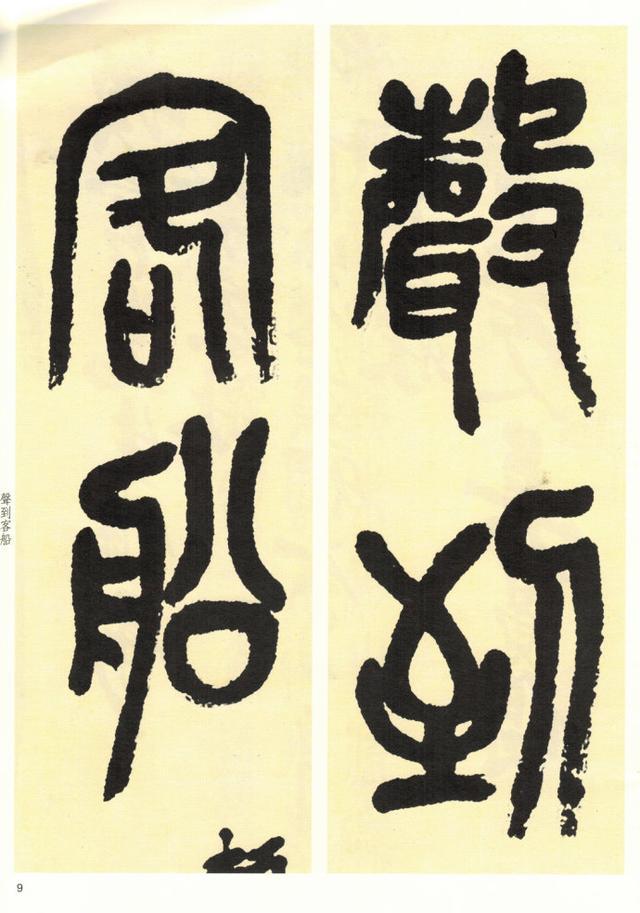 聲到
客船
聲到客船
9